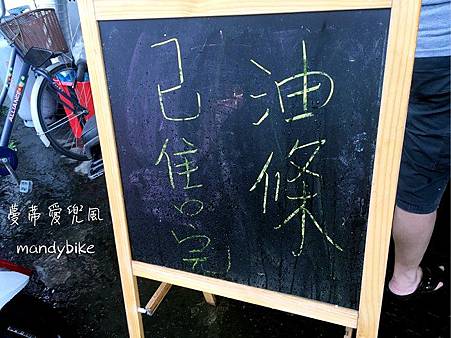 油條
已售完
曼蒂愛兜風
mandybike